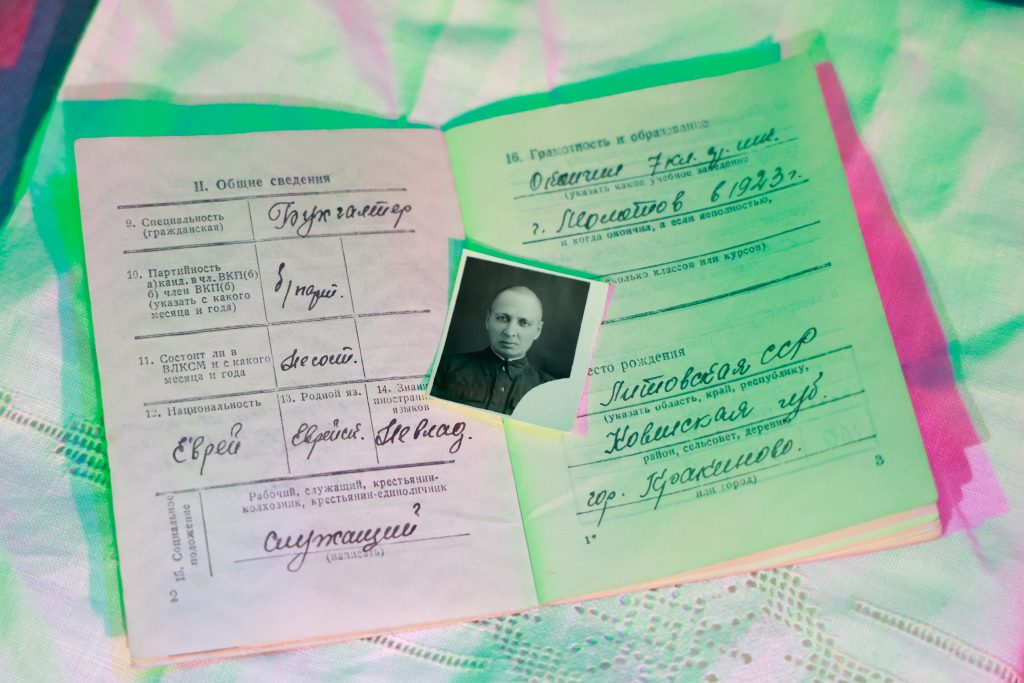 II. Общие сведения
9. Специальность
(гражданская)
Бухгалтер
10. Партийность
а) канд. в чл. ВКП(б)
б) член ВКП(б)
(указать с какого
месяца и года)
б/парт.
11. Состоит ли в
ВЛКСМ и с какого
месяца и года
Не сост.
12. Национальность
Еврей
13. Родной яз.
Еврейск.
14. Знание
иностран
языков
Не влад.
15. Социальное
положение
Рабочий, служащий, крестьянин-
колхозник, крестьянин-единоличник
служащий
(написать)
2
16. Грамотность и образование
Окончил 7 кл.
(указать какое учебное заведение
г. Молотов в 1923 г.
и когда окончил, а если неполностью,
сколько классов или курсов)
есто рождения
Литовская ССР
(указать область, край, республику,
Ковенская губ.
район, сельсовет, деревню
гор. Кракиново.
или город)
1*
3